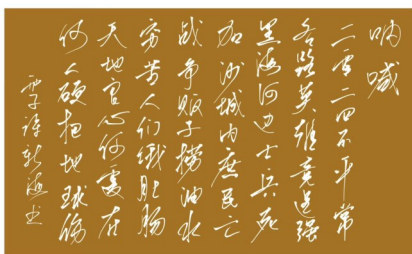 呐喊
二零二四不平常
各路英雄竞逞强
黑海河边士兵死
加沙城内庶民亡
战争贩子捞油水
穷苦人们饿肚肠
天地良心何处在
何人硬把地球伤
许新海书